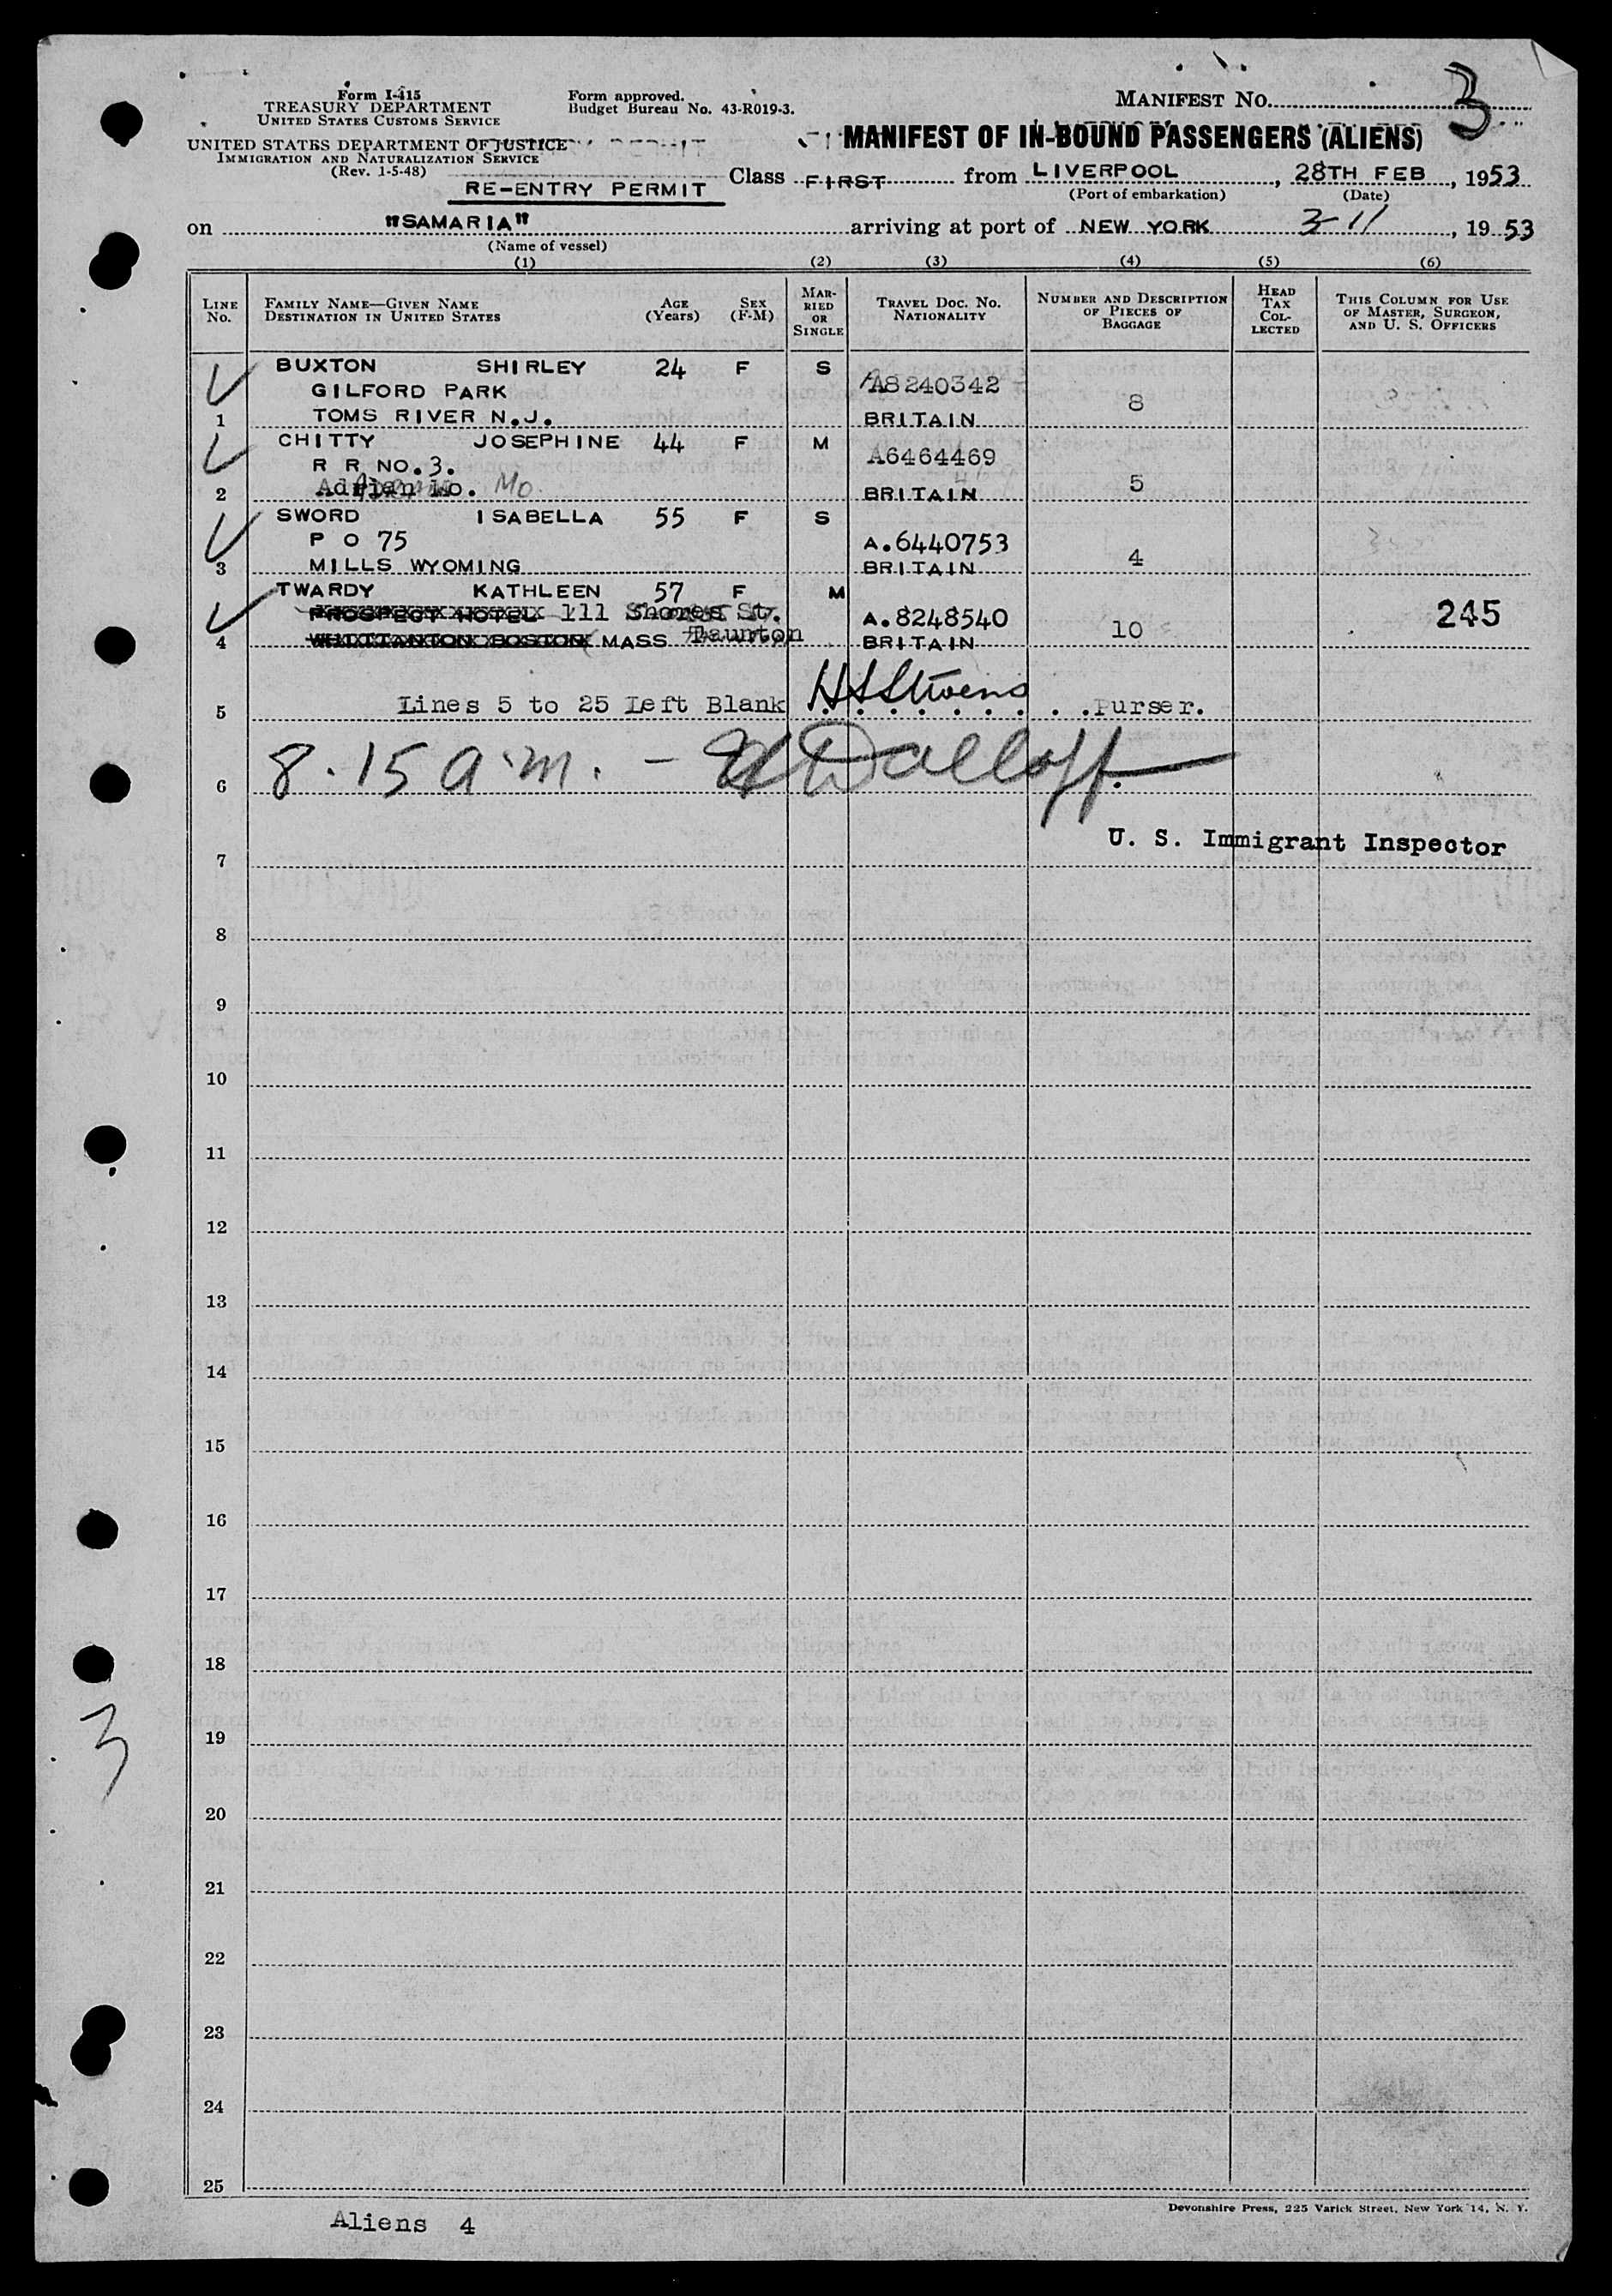 Form I-415
TREASURY DEPARTMENT
UNITED STATES CUSTOMS SERVICE
Form approved.
Budget Bureau No. 43-R019-3.
MANIFEST No. 3
UNITED STATES DEPARTMENT OF JUSTICE
IMMIGRATION AND NATURALIZATION SERVICE
(Rev. 1-5-48)
MANIFEST OF IN-BOUND PASSENGERS (ALIENS)
RE-ENTRY PERMIT
Class FIRST from LIVERPOOL, 28TH FEB, 1953
(Port of embarkation) (Date)
on "SAMARIA" arriving at port of NEW YORK 3-11, 1953
(Name of vessel)
(1) (2) (3) (4) (5) (6)
LINE No.
FAMILY NAME—GIVEN NAME
DESTINATION IN UNITED STATES
AGE (Years)
SEX (F-M)
MARRIED OR SINGLE
TRAVEL DOC. NO.
NATIONALITY
NUMBER AND DESCRIPTION OF PIECES OF BAGGAGE
HEAD TAX COLLECTED
THIS COLUMN FOR USE OF MASTER, SURGEON, AND U. S. OFFICERS
BUXTON SHIRLEY 24 F S A8240342
GILFORD PARK 8
1 TOMS RIVER N.J. BRITAIN
CHITTY JOSEPHINE 44 F M A6464469
R R NO.3. 5
2 Adrian Mo. BRITAIN
SWORD ISABELLA 55 F S
P O 75 A.6440753
3 MILLS WYOMING BRITAIN 4
TWARDY KATHLEEN 57 F M
PROSPECT HOTEL 111 Shores St. A.8248540 10 245
4 BOSTON MASS Taunton BRITAIN
5 Lines 5 to 25 Left Blank H S Stivens Purser.
6 8.15 a.m. -
U. S. Immigrant Inspector
7
8
9
10
11
12
13
14
15
16
17
18
3
19
20
21
22
23
24
25
Devonshire Press, 225 Varick Street, New York 14, N. Y.
Aliens 4